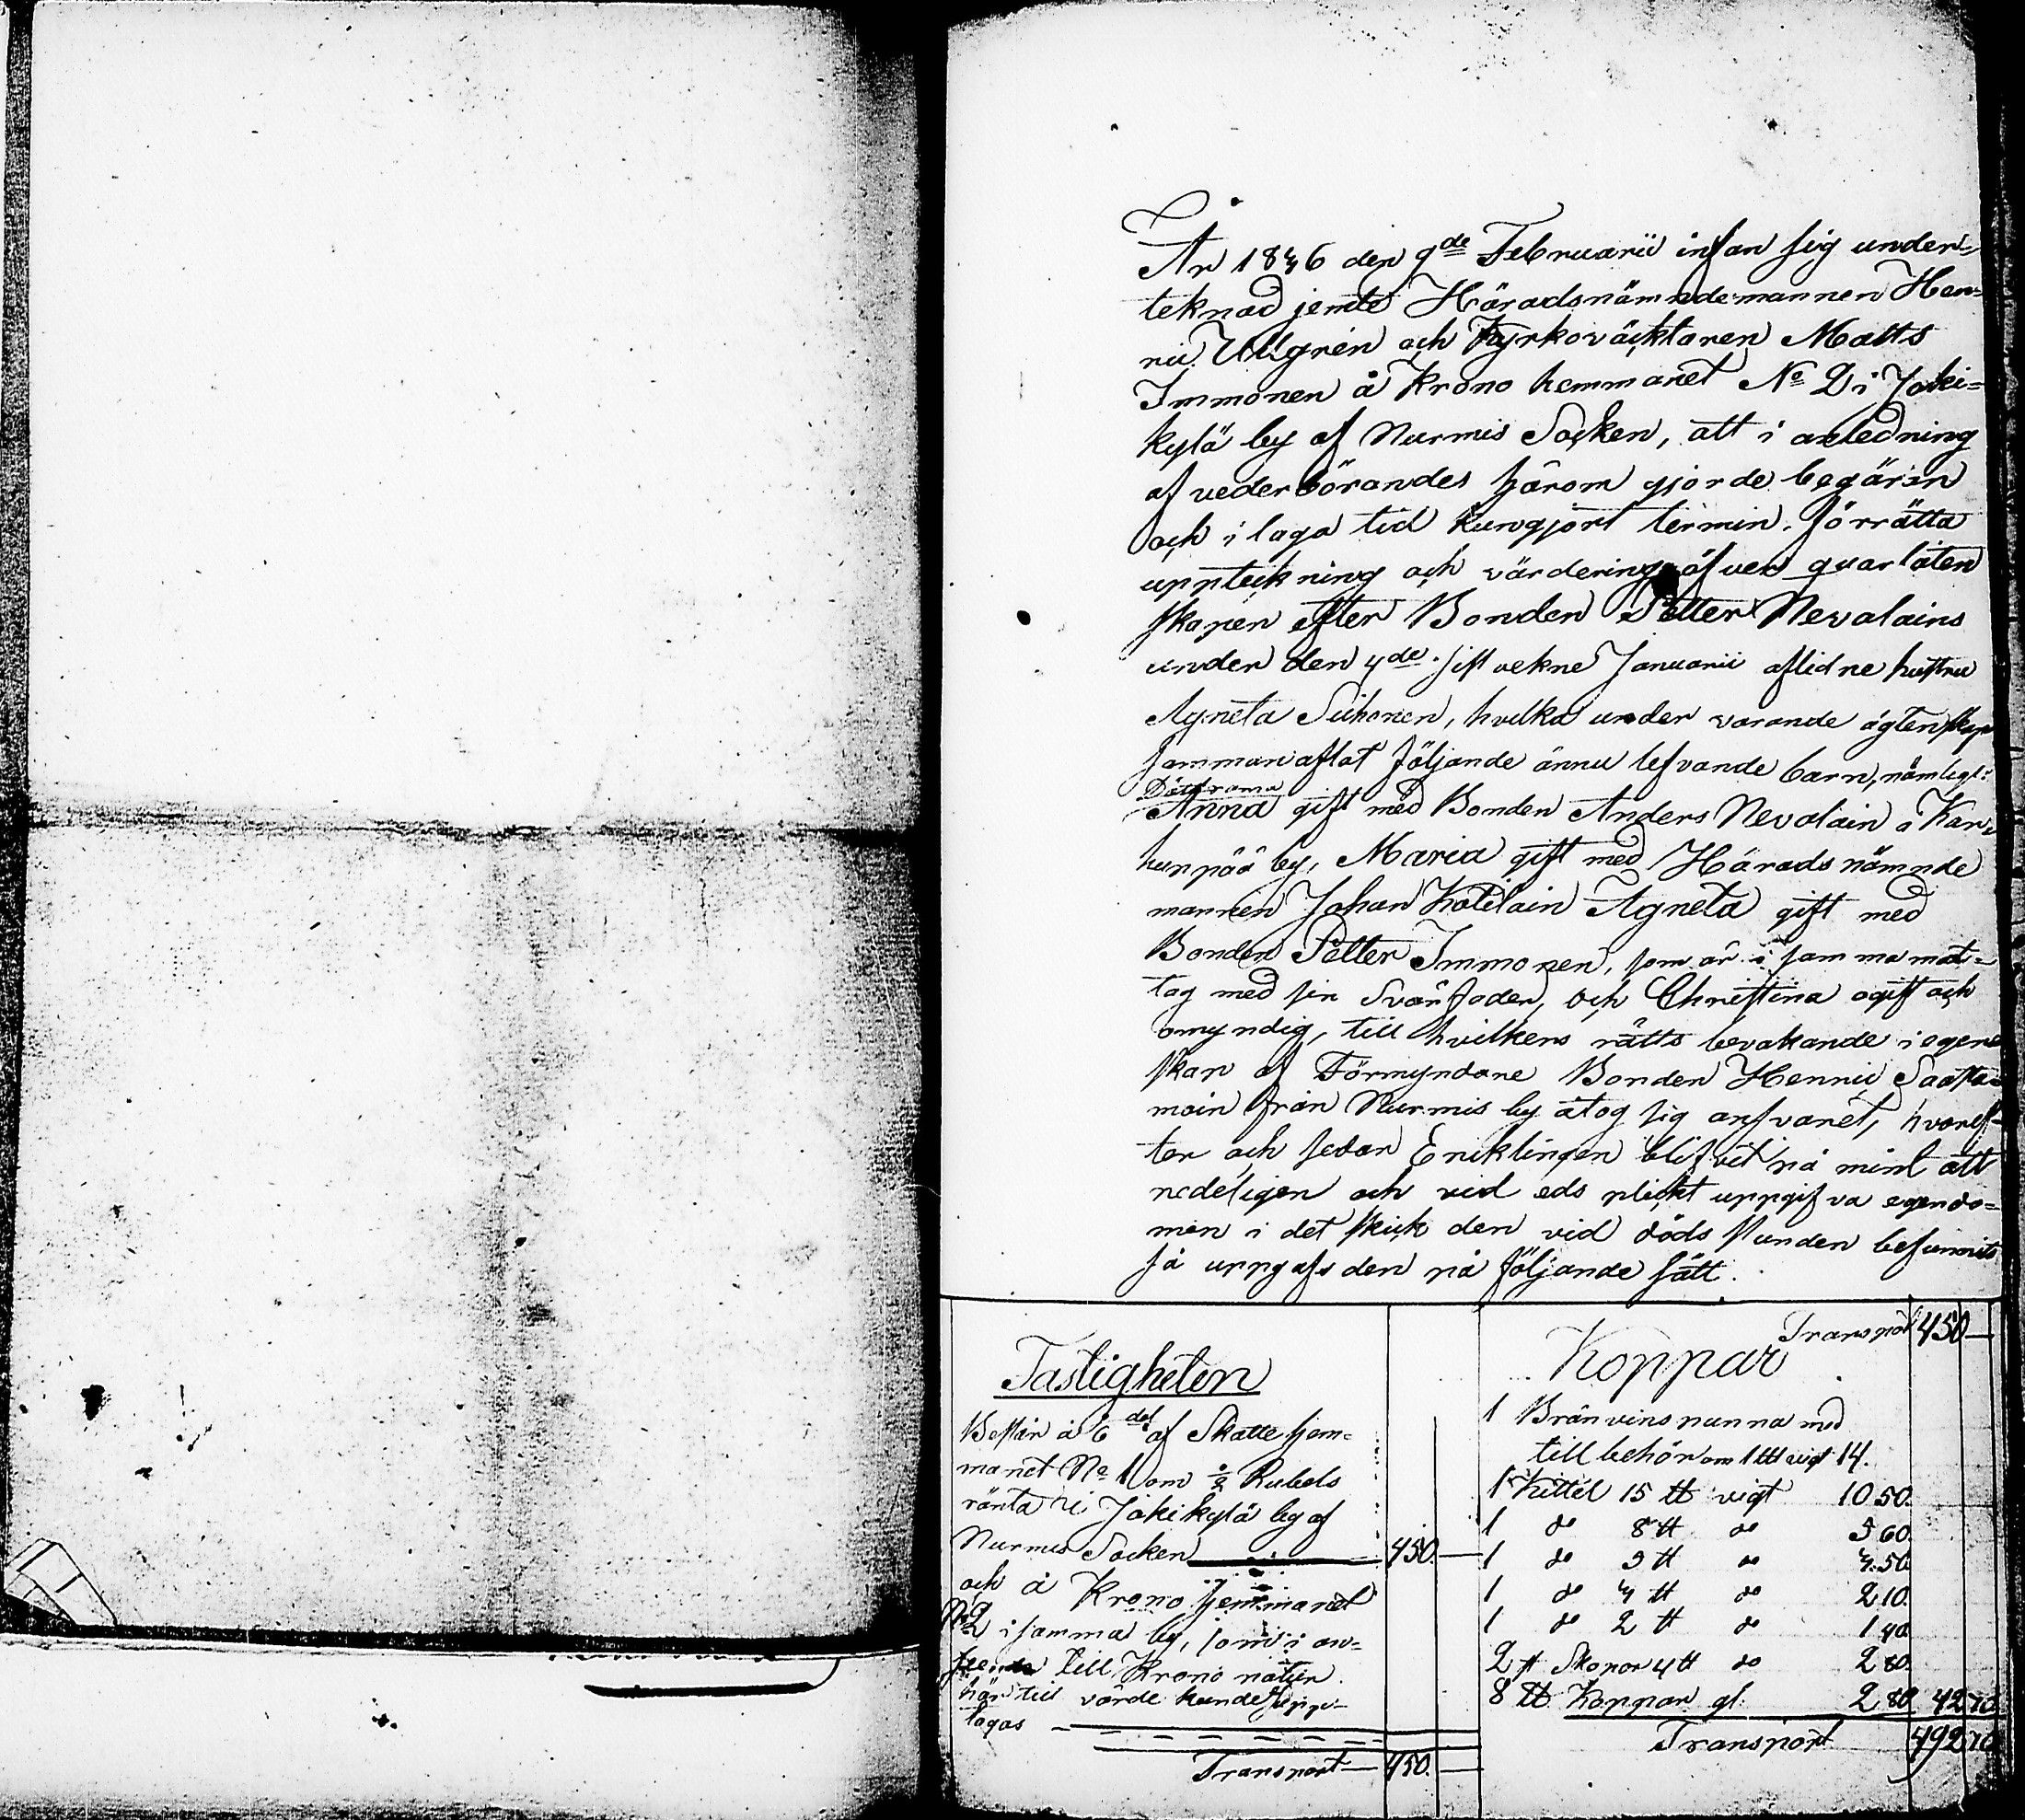 År 1846 den 9de Februarii infan sig under-
teknad jemte Häradsnämndemannen Hen-
ric Ullgrén och Kyrkoväcktaren Matts
Immonen å Krono hemmanet No 2 i Joki-
kylä by af Nurmis Socken, att i anledning
af vederbörandes härom gjorde begäran
och i laga tid kungjort termin förrätta
uppteckning och värdering öfver quarlåten
skapen efter Bonden Petter Nevalains
under den 4de sistvekne Januarii aflidne hustru
Agneta Siihonen, hvilka under varande ägtenskap
samman aflat följande ännu lefvande barn, nämligl:
Döttrarna
Anna gift med Bonden Anders Nevalain å Kar-
hunpää by, Maria gift med Härads nämnde
mannen Johan Kotilain Agneta gift med
Bonden Petter Immonen, som är i samma mat-
tag med sin Svärfader, och Christina ogift och
omyndig, till hvilkens rätts bevakande i egen
skap af Förmyndare Bonden Henric Saasta-
moin från Nurmis by åtog sig ansvaret, hvaref-
ter och sedan Enklingen blifvit på mint att
redeligen och vid eds plickt uppgifva egendo-
men i det skick den vid döds stunden befunnits
så uppgafs den på följande sätt.
Fastigheten
Består å 6del af Skatte hem-
manet No 1 om Rubels
ränta i Jokikylä by af
Nurmis Socken 450.
och å Krono hemmanet
No 2 i samma by, som i an-
till Krono natur
här till värde kunde upp-
tagas
Transport 450.
Transport 450
Koppar
1 Bränvins panna med
till behör om 1 vigt 14.
1 Kittel 15 ℔ vigt 10 50.
1 do 8 ℔ do 5 60.
1 do 5 ℔ do 3.50
1 do 3 ℔ do 2 10.
1 do 2 ℔ do 1 40
2 st Skopor 4 ℔ do 2 80.
8 ℔ Koppar gl. 2 80 42 70
Transport 492 70